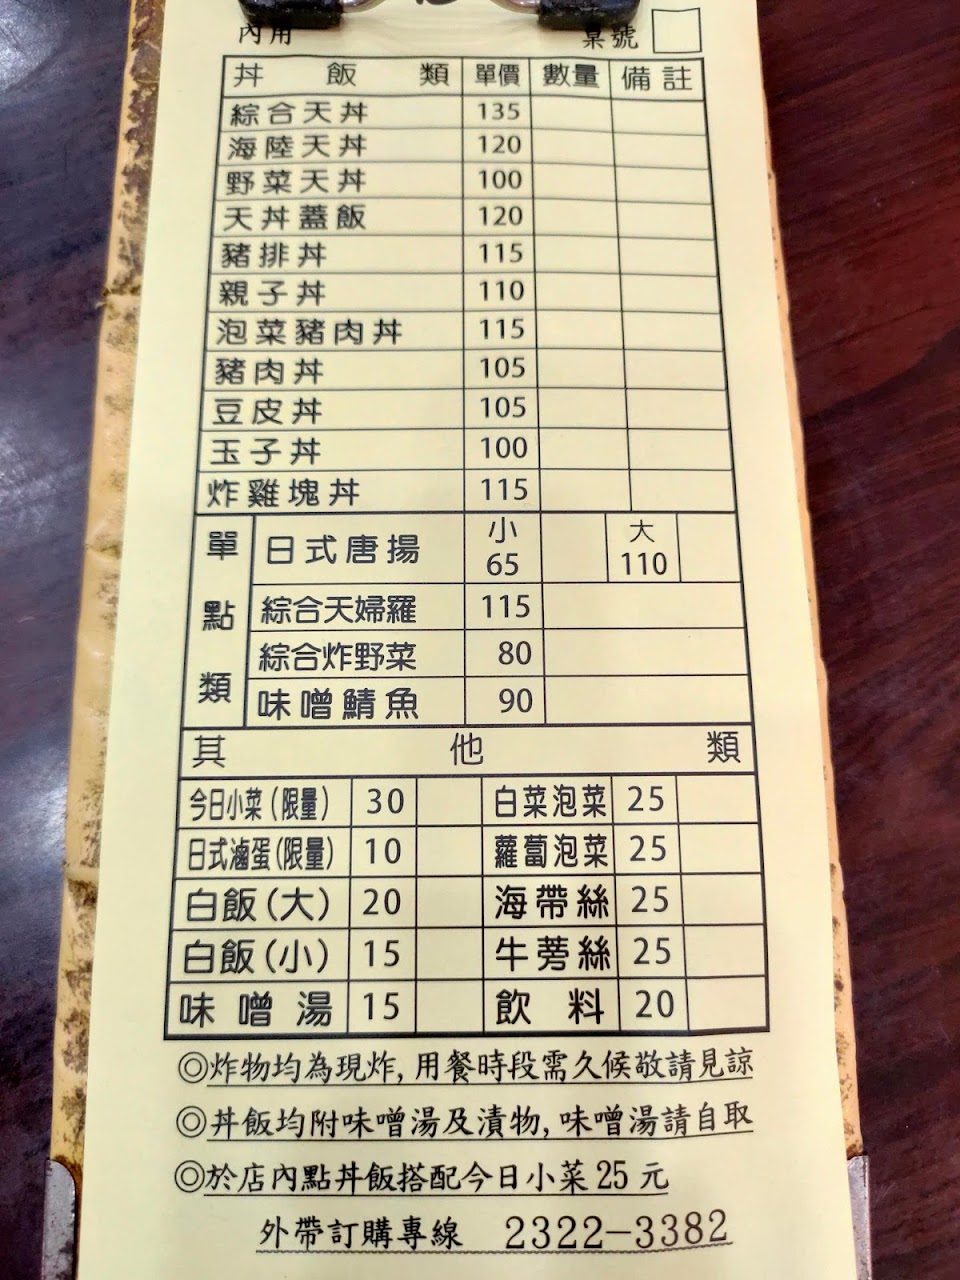 內用 桌號
丼飯類 單價 數量 備註
綜合天丼 135
海陸天丼 120
野菜天丼 100
天丼蓋飯 120
豬排丼 115
親子丼 110
泡菜豬肉丼 115
豬肉丼 105
豆皮丼 105
玉子丼 100
炸雞塊丼 115
單點類
日式唐揚 小 65 大 110
綜合天婦羅 115
綜合炸野菜 80
味噌鯖魚 90
其他類
今日小菜(限量) 30 白菜泡菜 25
日式滷蛋(限量) 10 蘿蔔泡菜 25
白飯(大) 20 海帶絲 25
白飯(小) 15 牛蒡絲 25
味噌湯 15 飲料 20
◎炸物均為現炸,用餐時段需久候敬請見諒
◎丼飯均附味噌湯及漬物,味噌湯請自取
◎於店內點丼飯搭配今日小菜25元
外帶訂購專線 2322-3382